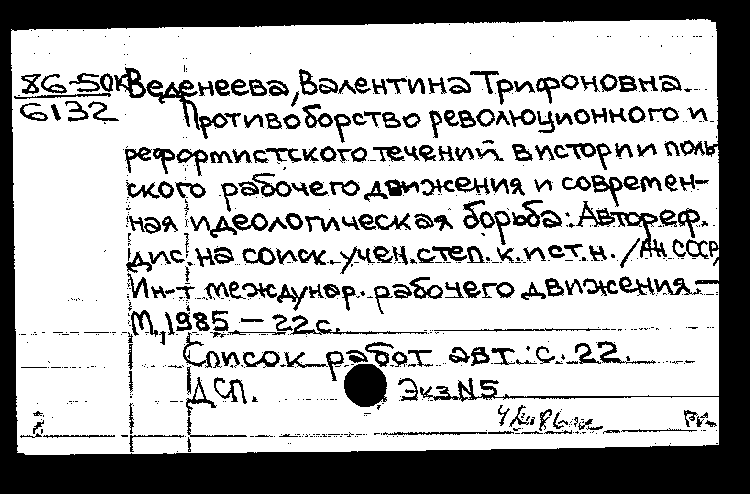 86-50к Веденеева, Валентина Трифоновна.
6132 Противоборство революционного и
реформистского течений в истории поль
ского рабочего движения и современ-
ная идеологическая борьба: Автореф.
дис. на соиск. учен. степ. к. ист. н. / АН СССР,
Ин-т междунар. рабочего движения. —
М., 1985. — 22 с.
Список работ авт.: с. 22.
ДСП. Экз. N 5.